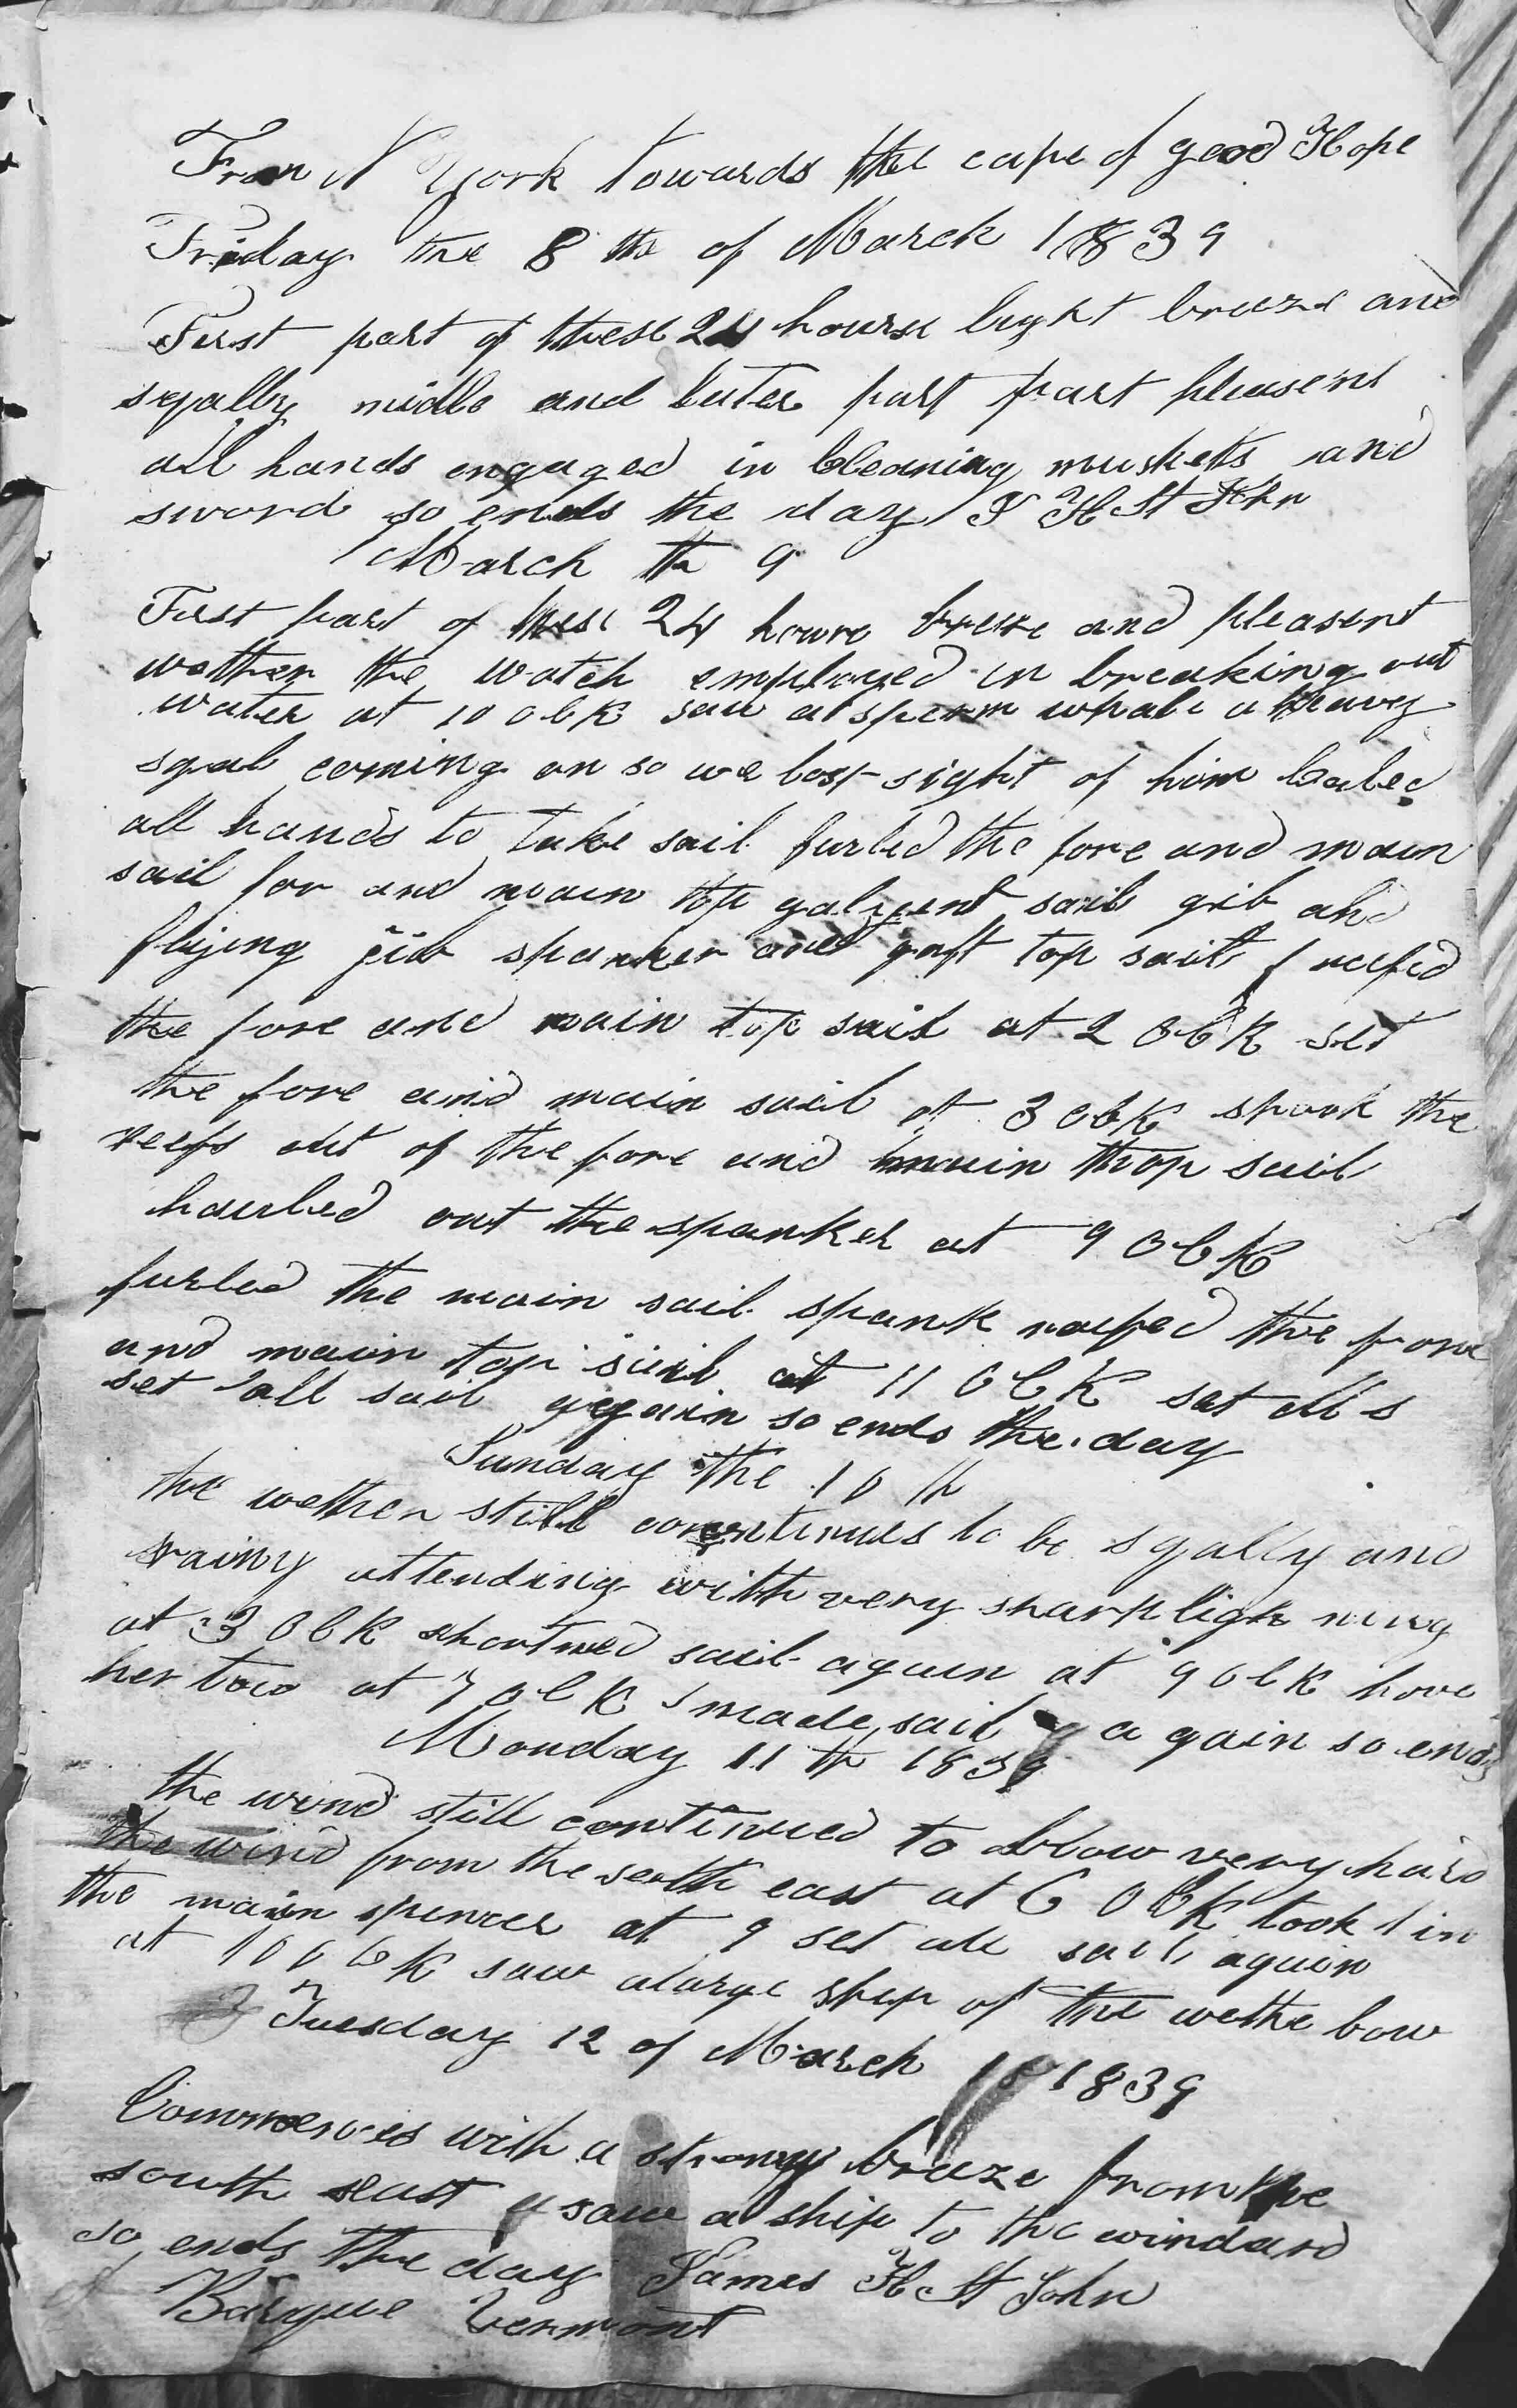 From N York towards the cape of good Hope
Friday the 8 th of March 1839
First part of these 24 hours light breeze and
sqally midle and later part part pleasent
all hands engaged in cleaning muskets and
sword so ends the day J H St John
March th 9
First part of these 24 hours breze and pleasent
wether the watch employed in breaking out
water at 10 oclk saw a sperm whale a heavy
sqal coming on so we lost sight of him caled
all hands to take sail furled the fore and main
sail for and main top galgent sails gib and
flying jib spanker and gaft top sail reefed
the fore and main top sail at 2 oclk set
the fore and main sail at 3 oclk shook the
reefs out of the fore and main thop sail
hauled out the spanker at 9 oclk
furled the main sail spank reefed the fore
and main top sail at 11 oclk set all s
set all sail again so ends the day
Sunday the 10 th
the wether still continues to be sqally and
rainy attending with very sharp ligh ning
at 3 oclk shortned sail again at 9 oclk hove
her two at 7 oclk made sail a gain so ends
Monday 11 th 1839
the wind still continued to blow very hard
the wind from the south east at 6 oclk took in
the main spencer at 9 set all sail again
at 10 oclk saw a large ship of the wethe bow
Tuesday 12 of March 1839
Commences with a strong breeze from the
south east saw a ship to the windard
so ends the day James H St John
Barque Vermont